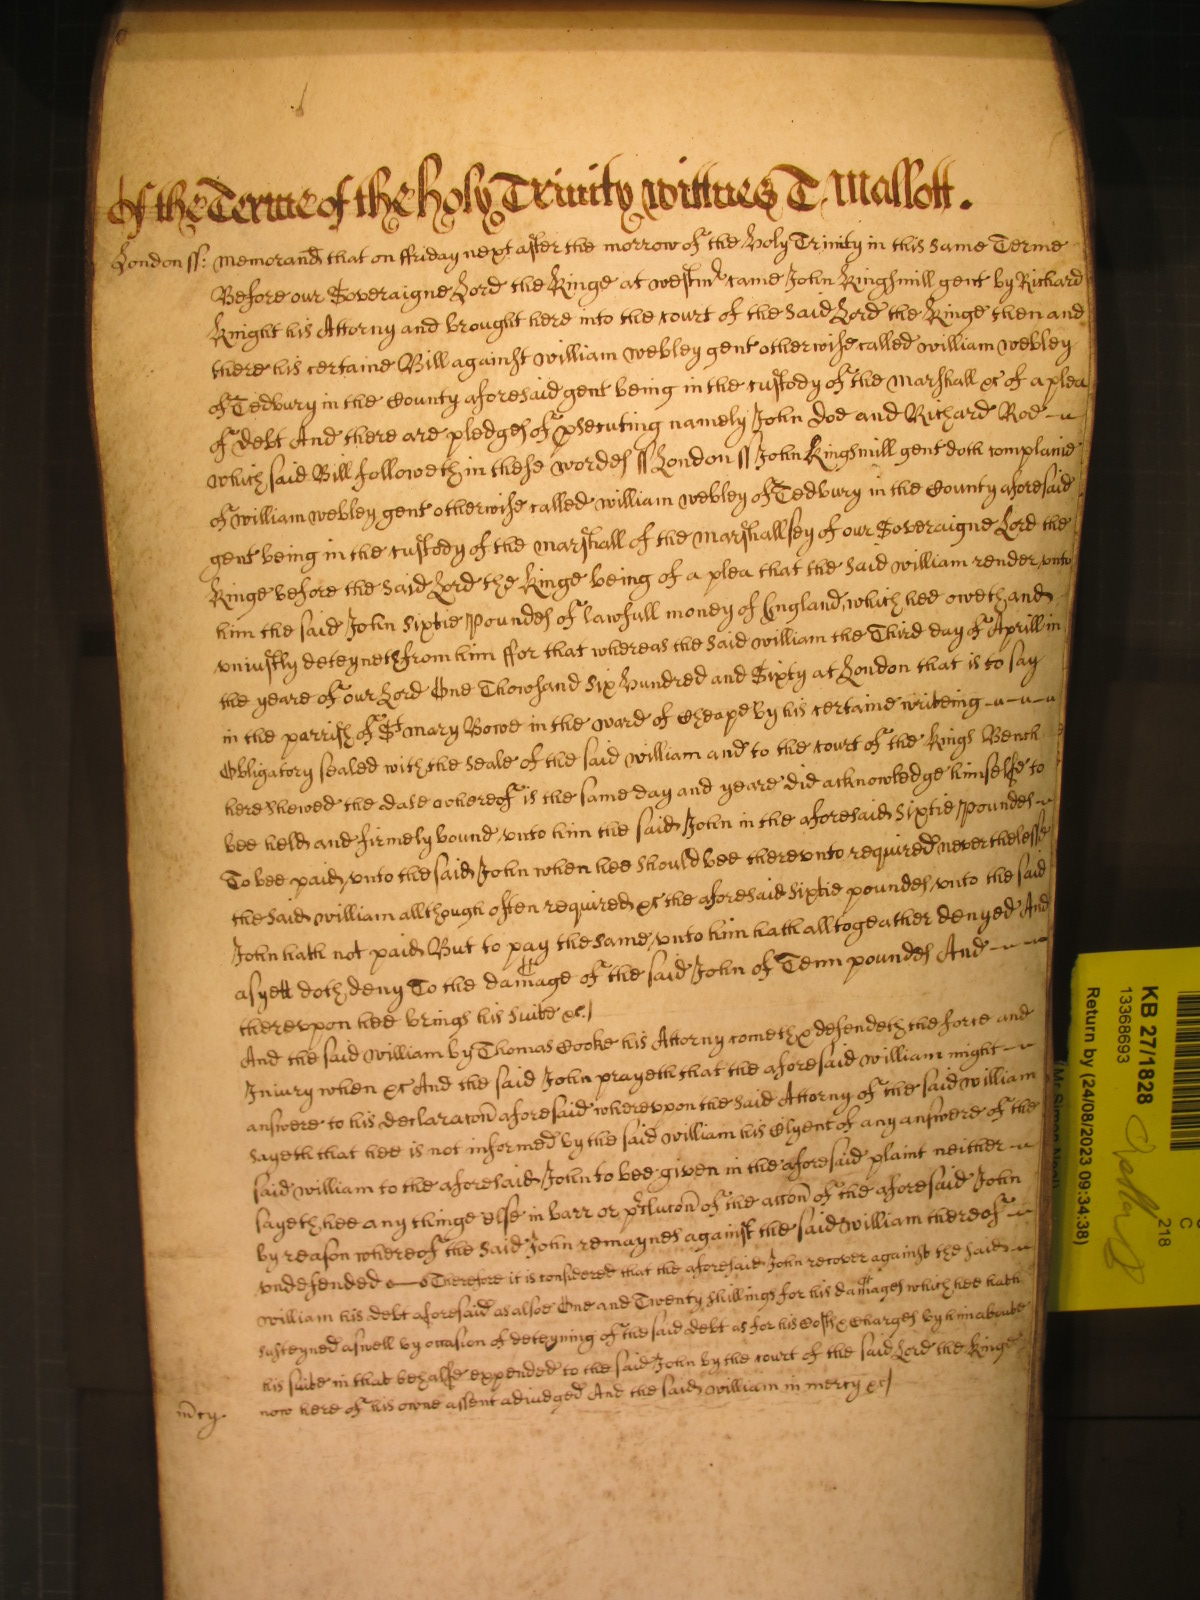 Of the Terme of the holy Trinity wittnes T. Mallett.
London ss: Memorand that on ffriday next after the morrow of the Holy Trinity in this same Terme
Before our Soveraigne Lord the Kinge at westmr came John Kingsmill gent by Richard
Knight his Attorny and brought here into the court of the said Lord the Kinge then and
there his certaine Bill against william webley gent otherwise called william webley
of Tedbury in the County aforesaid gent being in the custody of the Marshall &c of a plea
of debt And there are pledges of psecuting namely John Doe and Richard Roe
which said Bill followeth in these wordes ss London ss John Kingsmill gent doth complaine
of william webley gent otherwise called william webley of Tedbury in the County aforesaid
gent being in the custody of the Marshall of the Marshallsey of our Soveraigne Lord the
Kinge before the said Lord the Kinge being of a plea that the said william render unto
him the said John Sixtie Poundes of lawfull money of England, which hee oweth and
vniustly deteyneth from him ffor that whereas the said william the Third day of Aprill in
the yeare of our Lord One Thowsand Six Hundred and Sixty at London that is to say
in the parrish of St Mary Bowe in the ward of Cheape by his certaine writeing
Obligatory sealed with the seale of the said william and to the court of the Kings Bench
here shewed the date whereof is the same day and yeare did acknowledge himselfe to
bee held and firmely bound vnto him the said John in the aforesaid Sixtie Poundes
To bee paid vnto the said John when hee should bee therevnto required neverthelesse
the said william allthough often required &c the aforesaid Sixtie poundes vnto the said
John hath not paid But to pay the same vnto him hath alltogeather denyed And
as yett doth deny To the damage of the said John of Tenn poundes And
therevpon hee brings his suite &c.
And the said william by Thomas Cooke his Attorny cometh & defendeth the force and
Iniury when &c And the said John prayeth that the aforesaid william might
answere to his declaracon aforesaid wherevpon the said Attorny of the said william
sayeth that hee is not informed by the said william his Clyent of any answere of the
said william to the aforesaid John to bee given in the aforesaid plaint neither
sayeth hee any thinge else in barr or pclucon of the accon of the aforesaid John
by reason whereof the said John remaynes against the said william thereof
vndefended Therefore it is considered that the aforesaid John recover against the said
william his debt aforesaid as alsoe One and Twenty shillings for his damages which hee hath
susteyned aswell by occasion of deteyning of the said debt as for his Costs & Charges by him aboute
his suite in that behalfe expended to the said John by the court of the said Lord the Kinge
now here of his owne assent adiudged And the said william in mercy &c
mcy.
KB 27/1828
13368693
Return by (24/08/2023 09:34:38)
C
218